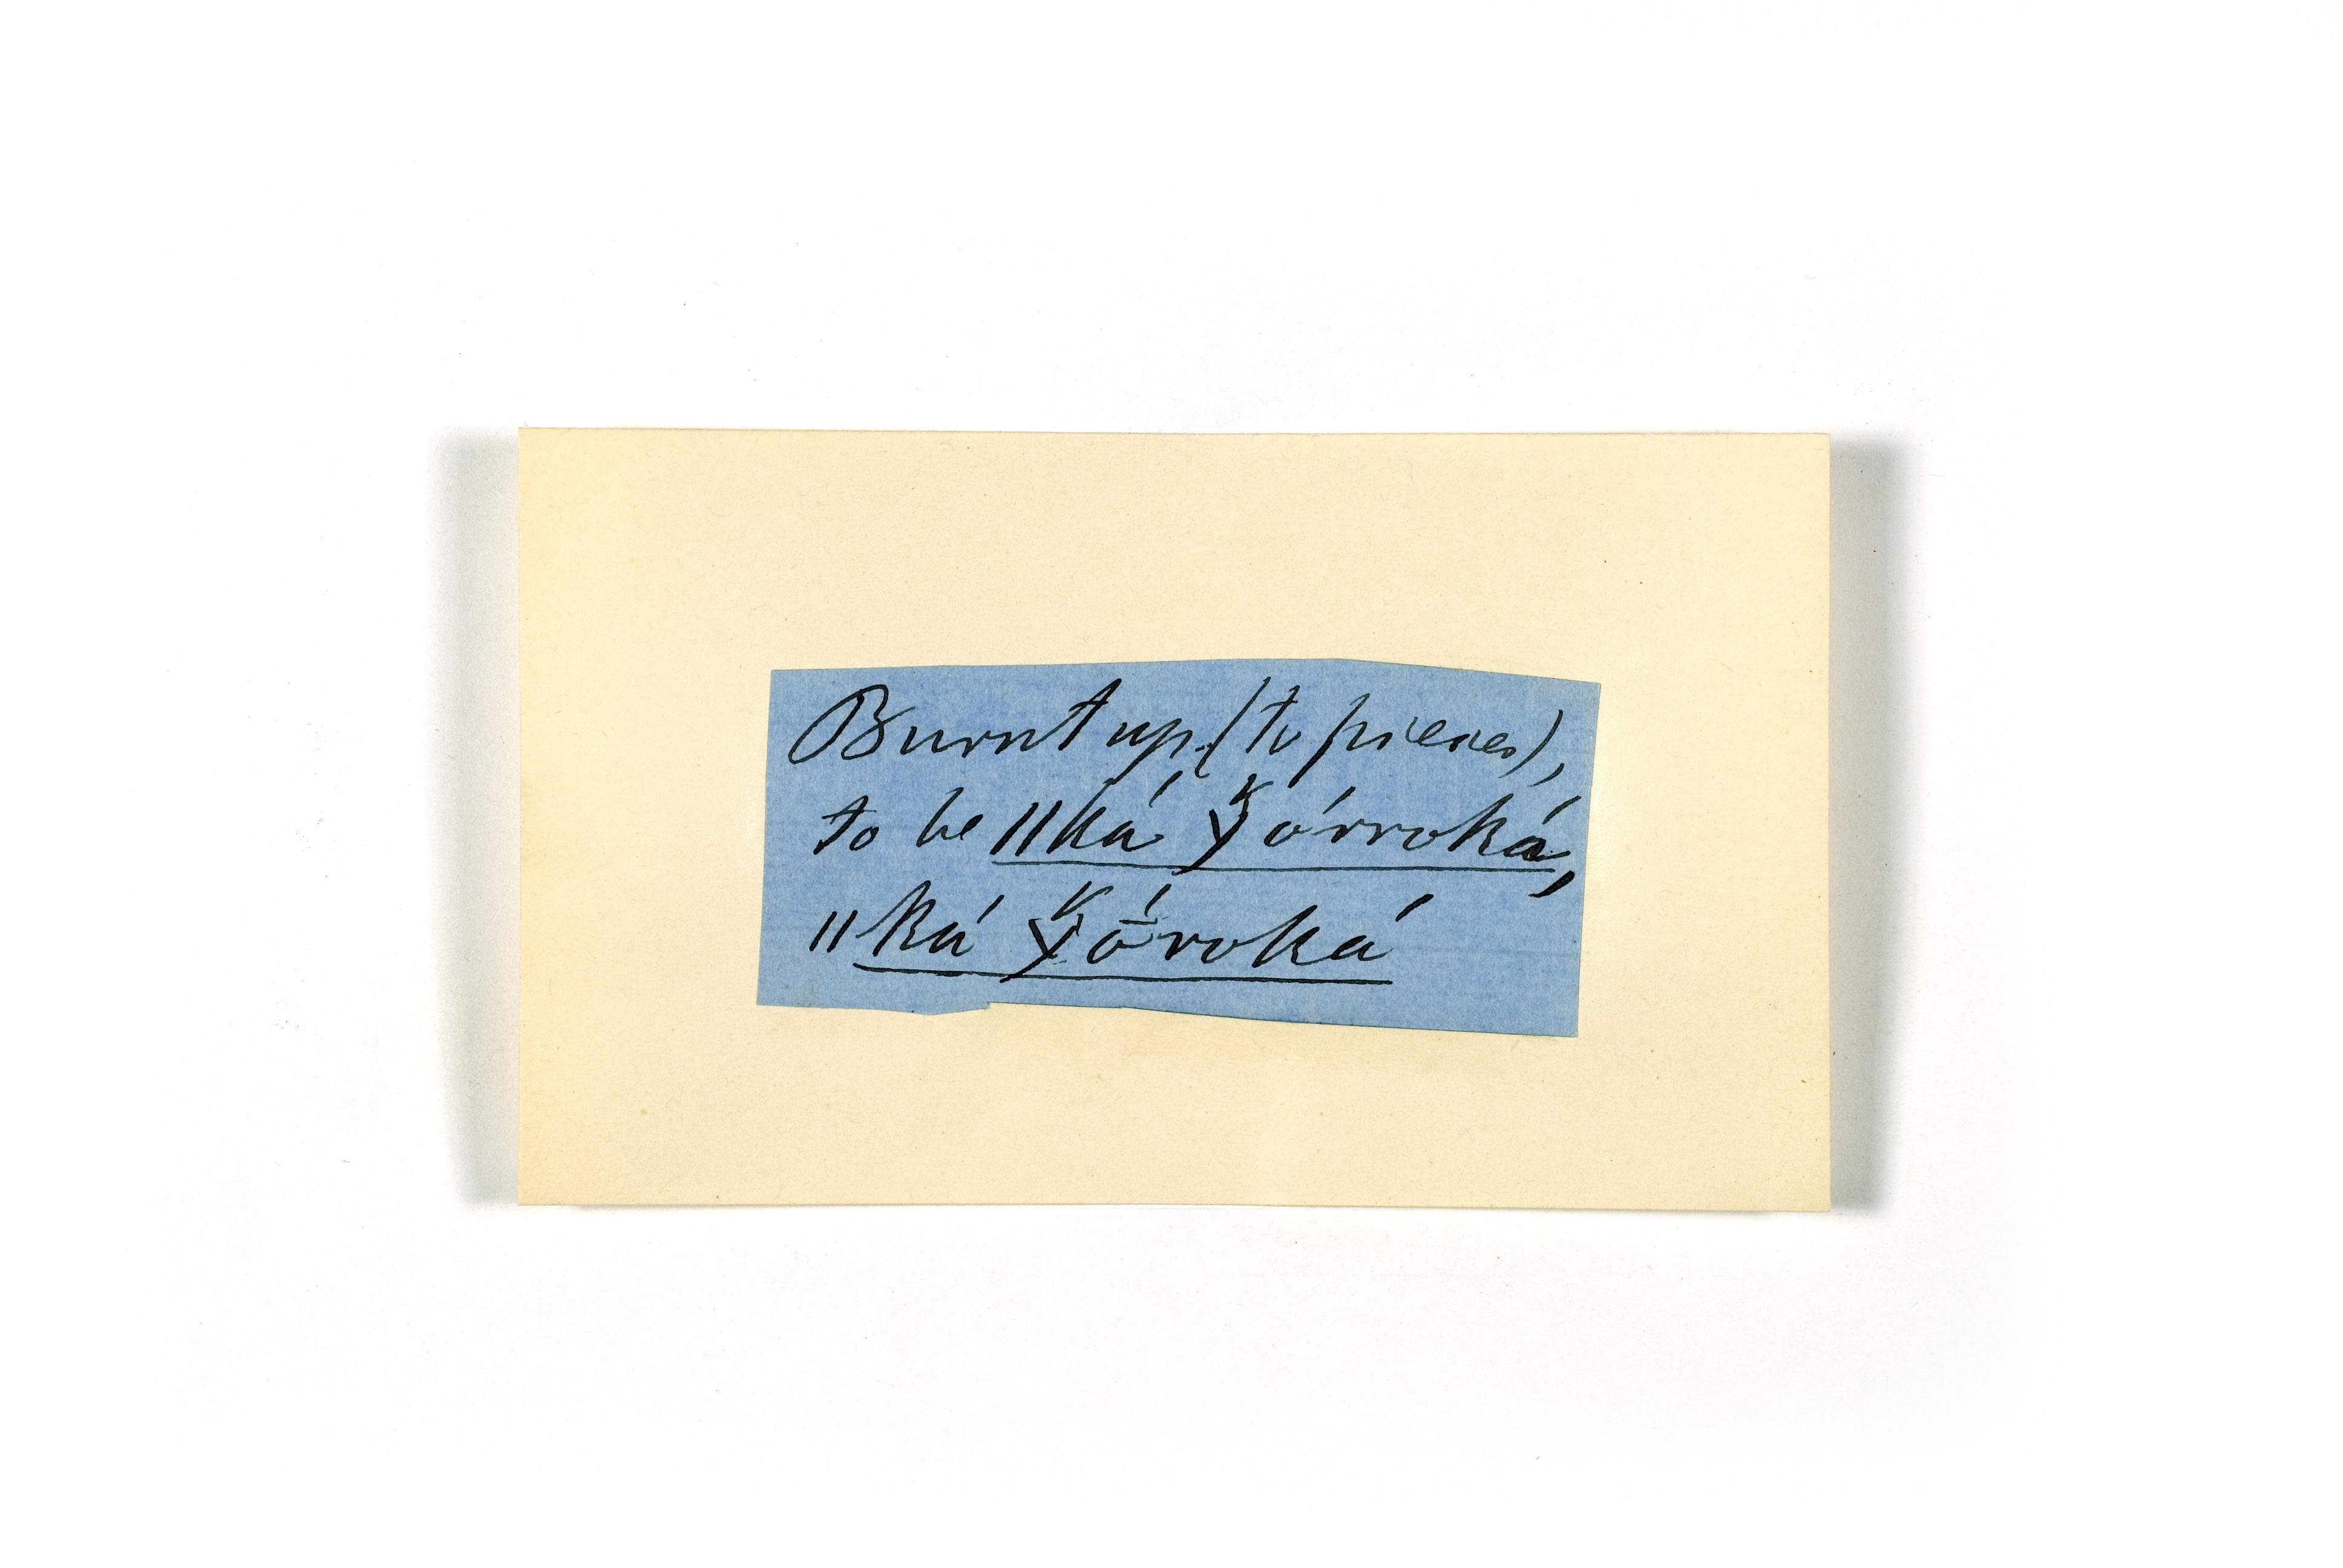 Burnt up (to pieces),
to be ǁká χ̆órroká,
ǁká χ̆ṓroká